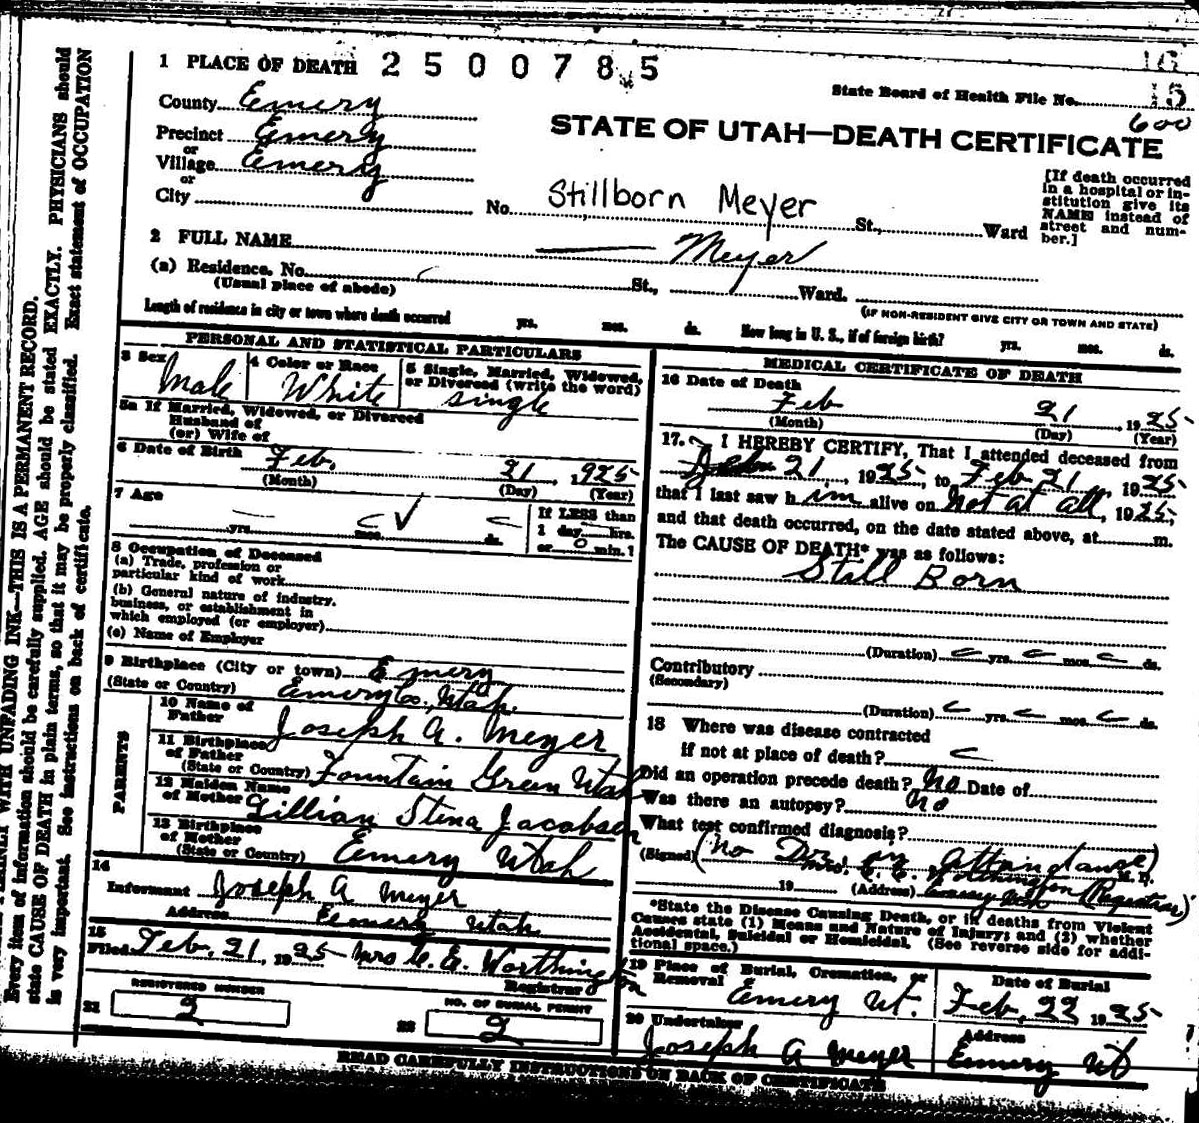 1 PLACE OF DEATH 2500785
State Board of Health File No. 15
600
County Emery
Precinct Emery
or
Village Emery
or
City No. Stillborn Meyer St., Ward
STATE OF UTAH—DEATH CERTIFICATE
[If death occurred
in a hospital or in-
stitution give its
NAME instead of
street and num-
ber.]
2 FULL NAME Meyer
(a) Residence. No. St., Ward.
(Usual place of abode)
(IF NON-RESIDENT GIVE CITY OR TOWN AND STATE)
Length of residence in city or town where death occurred yrs. mos. ds. How long in U. S., if of foreign birth? yrs. mos. ds.
PERSONAL AND STATISTICAL PARTICULARS
3 Sex Male
4 Color or Race White
5 Single, Married, Widowed,
or Divorced (write the word)
single
5a If Married, Widowed, or Divorced
Husband of
(or) Wife of
6 Date of Birth Feb. 21, 1925
(Month) (Day) (Year)
7 Age
yrs. mos. ds.
If LESS than
1 day hrs.
or 0 min.?
8 Occupation of Deceased
(a) Trade, profession or
particular kind of work
(b) General nature of industry.
business, or establishment in
which employed (or employer)
(c) Name of Employer
9 Birthplace (City or town) Emery
(State or Country) Emery Co., Utah.
PARENTS
10 Name of
Father Joseph A. Meyer
11 Birthplace
of Father
(State or Country) Fountain Green Utah
12 Maiden Name
of Mother Lillian Stena Jacobson
13 Birthplace
of Mother
(State or Country) Emery Utah
14
Informant Joseph A Meyer
Address Emery Utah
15
Filed Feb. 21, 1925 Mrs C. E. Worthington
Registrar
REGISTERED NUMBER
21 2
NO. OF BURIAL PERMIT
22 2
MEDICAL CERTIFICATE OF DEATH
16 Date of Death
Feb 21, 1925
(Month) (Day) (Year)
17. I HEREBY CERTIFY, That I attended deceased from
21, 1925, to Feb 21, 1925
that I last saw him alive on not at all, 1925,
and that death occurred, on the date stated above, at m.
The CAUSE OF DEATH* was as follows:
Still Born
(Duration) yrs. mos. ds.
Contributory
(Secondary)
(Duration) yrs. mos. ds.
18 Where was disease contracted
if not at place of death?
Did an operation precede death? No Date of
Was there an autopsy? No
What test confirmed diagnosis?
(Signed) (No Dr. in attendance) M. D.
Mrs. C. E. Worthington (Registrar)
19 (Address) Emery Utah
*State the Disease Causing Death, or in deaths from Violent
Causes state (1) Means and Nature of Injury; and (2) whether
Accidental, Suicidal or Homicidal. (See reverse side for addi-
tional space.)
19 Place of Burial, Cremation, or
Removal Emery Ut.
Date of Burial
Feb. 22, 1925
20 Undertaker
Joseph A Meyer
Address
Emery Ut
READ CAREFULLY INSTRUCTIONS ON BACK OF CERTIFICATE
WITH UNFADING INK—THIS IS A PERMANENT RECORD.
Every item of information should be carefully supplied. AGE should be stated EXACTLY. PHYSICIANS should
state CAUSE OF DEATH in plain terms, so that it may be properly classified. Exact statement of OCCUPATION
is very important. See instructions on back of certificate.